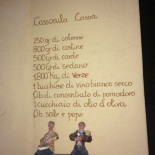 Cassoeula Casera
250 gr di cotenne
800 gr di costine
500 gr di carote
500 gr di sedano
1,800 Kg. di Verze
1 bicchiere di vino bianco secco
Qb di concentrato di pomodoro
1 cucchiaio di olio d'oliva
Qb sale e pepe